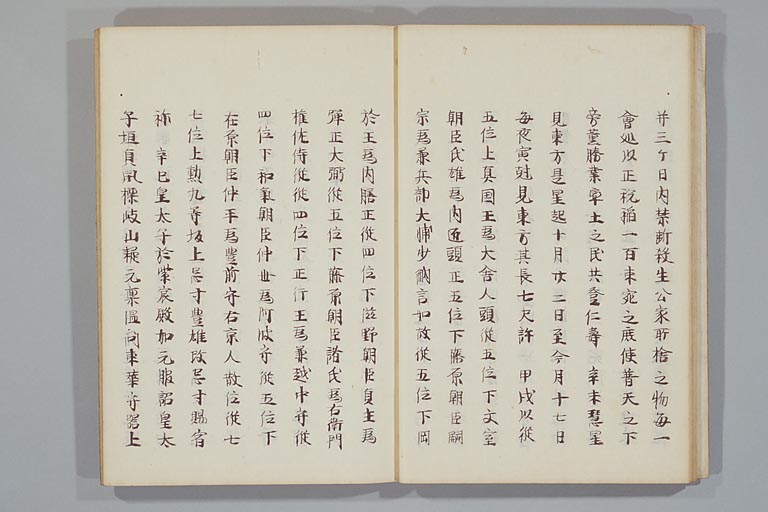 并三ケ日内禁断殺生公家所捨之物毎一
會処以正税稲一百束宛之庶使普天之下
旁薫勝業率土之民共登仁壽 辛未彗星
見東方是星起十月廿二日至今月十七日
毎夜寅剋見東方其長七尺許 甲戌以従
五位上真国王為大舎人頭従五位下文室
朝臣氏雄為内匠頭正五位下藤原朝臣嗣
宗為兼兵部大輔少納言如故従五位下岡
於王為内膳正従四位下滋野朝臣貞主為
弾正大弼従五位下藤原朝臣諸氏為右衛門
権佐侍従従四位下正行王為兼越中守従
四位下和氣朝臣仲世為阿波守従五位下
在原朝臣仲平為豊前守右京人散位従七
七位上勲九等坂上忌寸豊雄改忌寸賜宿
祢 辛巳皇太子於紫宸殿加元服詔皇太
子恒貞風標岐嶷元禀温